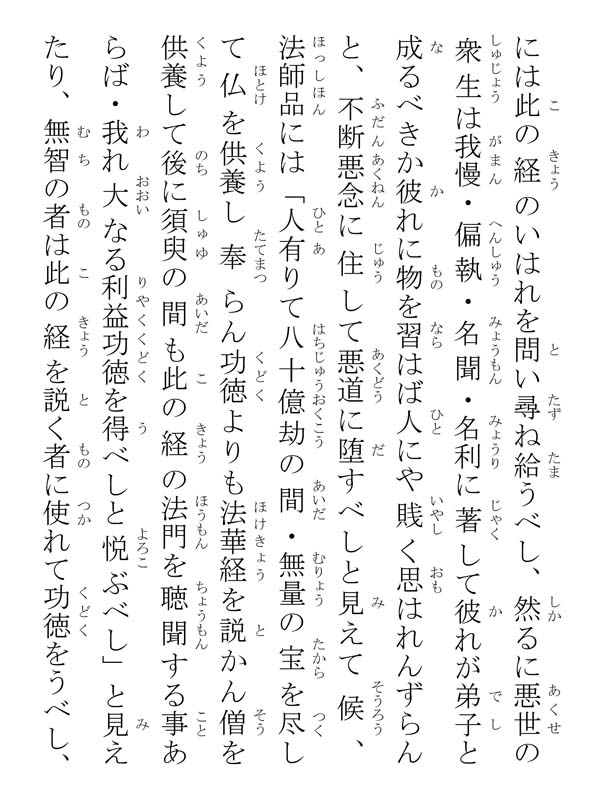 には此の経のいはれを問い尋ね給うべし、然るに悪世の
衆生は我慢・偏執・名聞・名利に著して彼れが弟子と
成るべきか彼れに物を習はば人にや賎く思はれんずらん
と、不断悪念に住して悪道に堕すべしと見えて候、
法師品には「人有りて八十億劫の間・無量の宝を尽し
て仏を供養し奉らん功徳よりも法華経を説かん僧を
供養して後に須臾の間も此の経の法門を聴聞する事あ
らば・我れ大なる利益功徳を得べしと悦ぶべし」と見え
たり、無智の者は此の経を説く者に使れて功徳をうべし、